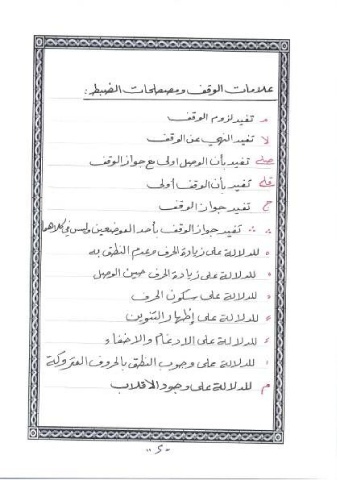 علامات الوقف ومصطلحات الضبط :
م تفيد لزوم الوقف
لا تفيد النهي عن الوقف
صلى تفيد بأن الوصل اولى مع جواز الوقف
قلى تفيد بأن الوقف أولى
ج تفيد جواز الوقف
∴ ∴ تفيد جواز الوقف بأحد الموضعين وليس في كلاهما
للدلالة على زيادة الحرف وعدم النطق به
للدلالة على زيادة الحرف حين الوصل
للدلالة على سكون الحرف
للدلالة على إظهار التنوين
للدلالة على الادغام والاخفاء
للدلالة على وجوب النطق بالحروف المتروكة
م للدلالة على وجود الاقلاب